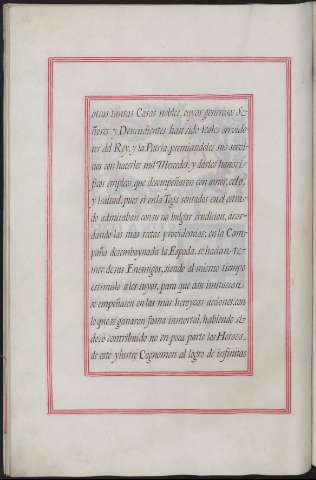 otras tantas Casas nobles, cuyos generosos Se-
ñores y Descendientes han sido reales servido-
res del Rey, y la Patria, premiandoles sus servi-
cios con hacerles mil Mercedes, y darles honori-
ficos empleos, que desempeñaron con amor, celo,
y lealtad, pues si en la Toga sentados en el estra-
do admiraban con su no bulgar erudicion, acor-
dando las mas rectas providencias; en la Cam-
paña desembaynada la Espada, se hacian te-
mer de sus Enemigos, siendo al mismo tiempo
estimulo a los suyos, para que a su imitacion
se empeñasen en las mas heroycas acciones, con
lo que se ganaron fama inmortal, habiendo si-
do contribuido no en poca parte los Heroes,
de este ylustre Cognomen al logro de infinitas